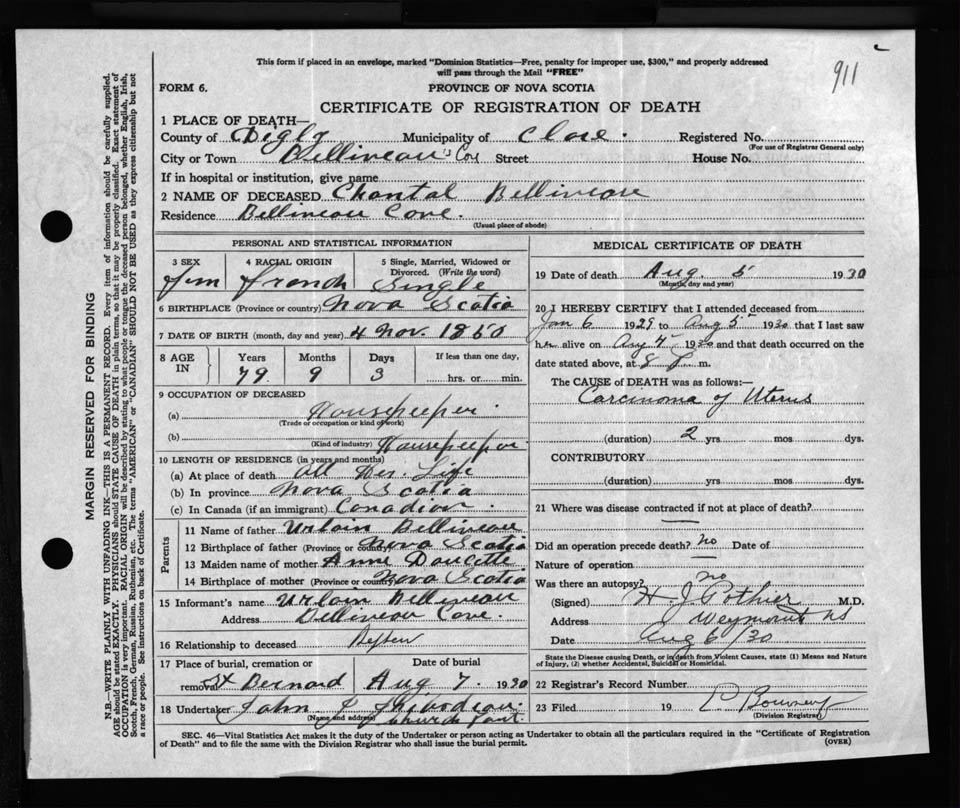 911
This form if placed in an envelope, marked "Dominion Statistics—Free, penalty for improper use, $300," and properly addressed
will pass through the Mail "FREE"
FORM 6.
PROVINCE OF NOVA SCOTIA
CERTIFICATE OF REGISTRATION OF DEATH
1 PLACE OF DEATH—
County of Digby Municipality of Clare. Registered No.
(For use of Registrar General only)
City or Town Belliveau's Cove Street House No.
If in hospital or institution, give name
2 NAME OF DECEASED Chantal Belliveau
Residence Bellineau Cove.
(Usual place of abode)
PERSONAL AND STATISTICAL INFORMATION
3 SEX
4 RACIAL ORIGIN
5 Single, Married, Widowed or Divorced. (Write the word)
Fem French Single
6 BIRTHPLACE (Province or country) Nova Scotia
7 DATE OF BIRTH (month, day and year) 4 Nov. 1850
8 AGE IN
Years Months Days If less than one day,
79 9 3 hrs. or min.
9 OCCUPATION OF DECEASED
(a) Housekeeper.
(Trade or occupation or kind of work)
(b) Housekeeper
(Kind of industry)
10 LENGTH OF RESIDENCE (in years and months)
(a) At place of death All Her Life
(b) In province Nova Scotia
(c) In Canada (if an immigrant) Canadian.
Parents
11 Name of father Urbain Bellineau
12 Birthplace of father (Province or country) Nova Scotia
13 Maiden name of mother Anne Doucette
14 Birthplace of mother (Province or country) Nova Scotia
15 Informant's name Urbain Bellineau
Address Bellineau Cove.
16 Relationship to deceased
17 Place of burial, cremation or removal St Bernard
Date of burial Aug 7. 1930
18 Undertaker John Thibodeau
(Name and address) Church Point.
MEDICAL CERTIFICATE OF DEATH
19 Date of death Aug. 5 1930
(Month, day and year)
20 I HEREBY CERTIFY that I attended deceased from
Jan 6 1929 to Aug 5 1930 that I last saw
her alive on Aug 4 1930 and that death occurred on the
date stated above, at 8 P. m.
The CAUSE of DEATH was as follows:—
Carcinoma of Uterus
(duration) 2 yrs mos dys.
CONTRIBUTORY
(duration) yrs. mos. dys.
21 Where was disease contracted if not at place of death?
Did an operation precede death? no Date of
Nature of operation
Was there an autopsy? no
(Signed) H. J. Pothier M.D.
Address Weymouth NS
Date Aug 6/30
State the Disease causing Death, or in death from Violent Causes, state (1) Means and Nature
of Injury, (2) whether Accidental, Suicidal or Homicidal.
22 Registrar's Record Number
23 Filed 19
(Division Registrar)
SEC. 46—Vital Statistics Act makes it the duty of the Undertaker or person acting as Undertaker to obtain all the particulars required in the "Certificate of Registration
of Death" and to file the same with the Division Registrar who shall issue the burial permit.
(OVER)
MARGIN RESERVED FOR BINDING
N.B.—WRITE PLAINLY WITH UNFADING INK—THIS IS A PERMANENT RECORD. Every item of information should be carefully supplied.
AGE should be stated EXACTLY. PHYSICIANS should STATE CAUSE OF DEATH in plain terms, so that it may be properly classified. Exact statement of
OCCUPATION is very important. RACIAL ORIGIN will be described by stating to what people or tongue the deceased person belonged, whether English, Irish,
Scotch, French, German, Russian, Ruthenian, etc. The terms "AMERICAN" or "CANADIAN" SHOULD NOT BE USED as they express citizenship but not
a race or people. See instructions on back of Certificate.